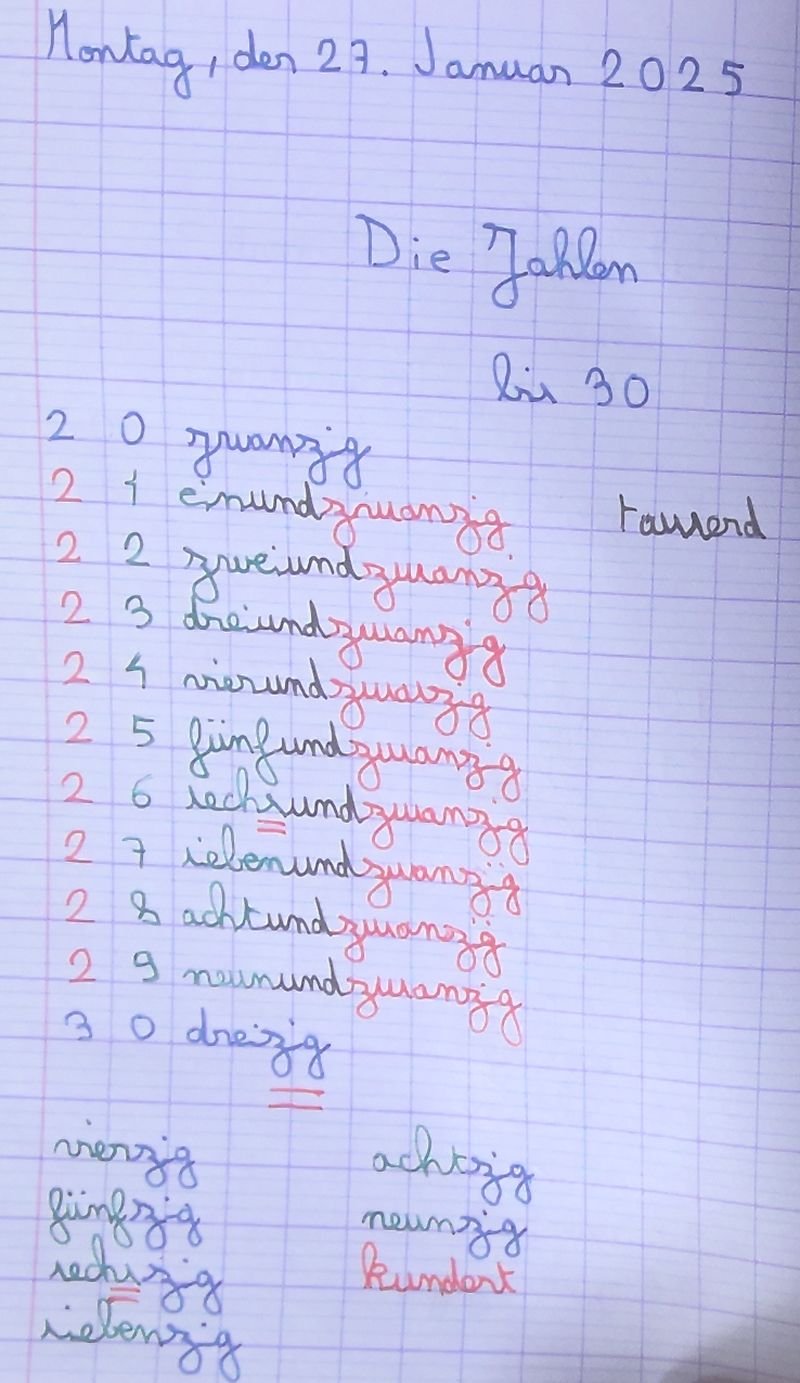 Montag, den 27. Januar 2025
Die Zahlen
bis 30
2 0 zwanzig
2 1 einundzwanzig tausend
2 2 zweiundzwanzig
2 3 dreiundzwanzig
2 4 vierundzwanzig
2 5 fünfundzwanzig
2 6 sechsundzwanzig
2 7 siebenundzwanzig
2 8 achtundzwanzig
2 9 neunundzwanzig
3 0 dreizig
vierzig achtzig
fünfzig neunzig
sechszig hundert
siebenzig